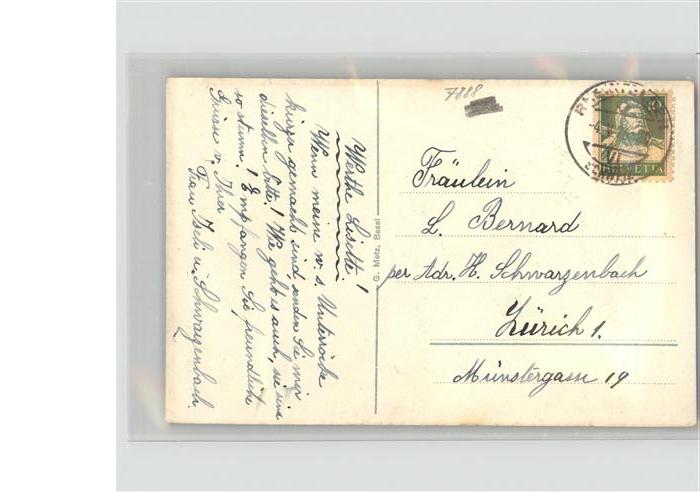 7888
Werthe Lisette!
Wenn meine w. s. Unterröcke
kurz gemacht sind, senden Sie mir
dieselben bitte! Wie geht es auch, sie
so stimm! Empfangen Sie freundliche
Grüsse v. Ihrer
Frau Schwarzenbach.
G. Metz, Basel
Fräulein
L. Bernard
per Adr. H. Schwarzenbach
Zürich 1.
Münstergasse 19
HELVETIA
VII